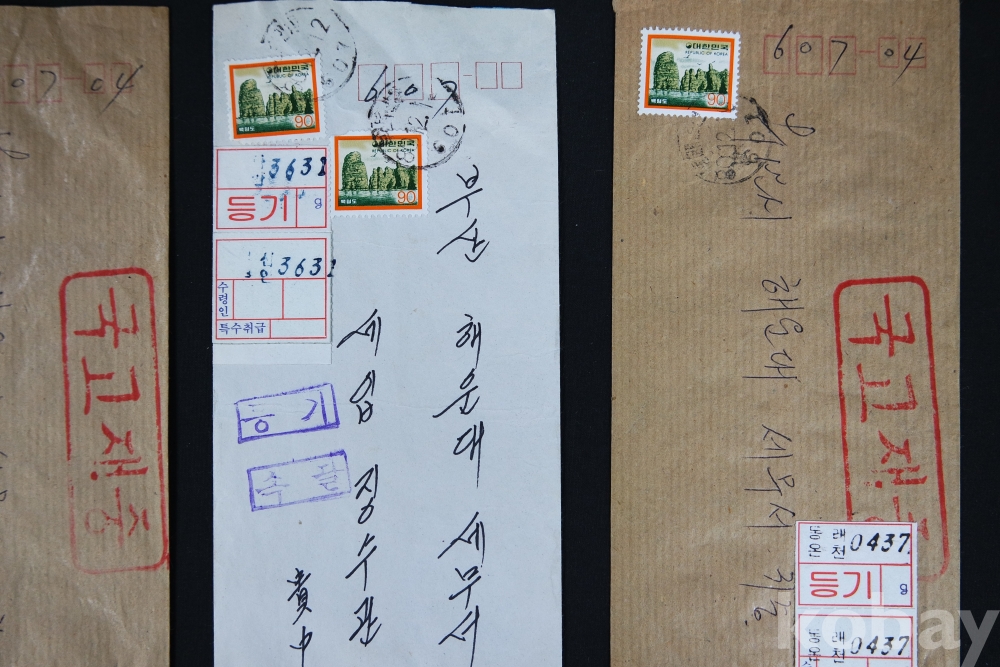 07-04
국고재중
대한민국
REPUBLIC OF KOREA
백령도
90
대한민국
REPUBLIC OF KOREA
백령도
90
3631
등기
g
3631
수령인
특수취급
등기
속달
부산
해운대 세무서
세입 징수관
貴中
대한민국
REPUBLIC OF KOREA
90
607-04
해운대 세무서
국고재중
동래
온천
0437
등기
g
동래
온천
0437
kobay